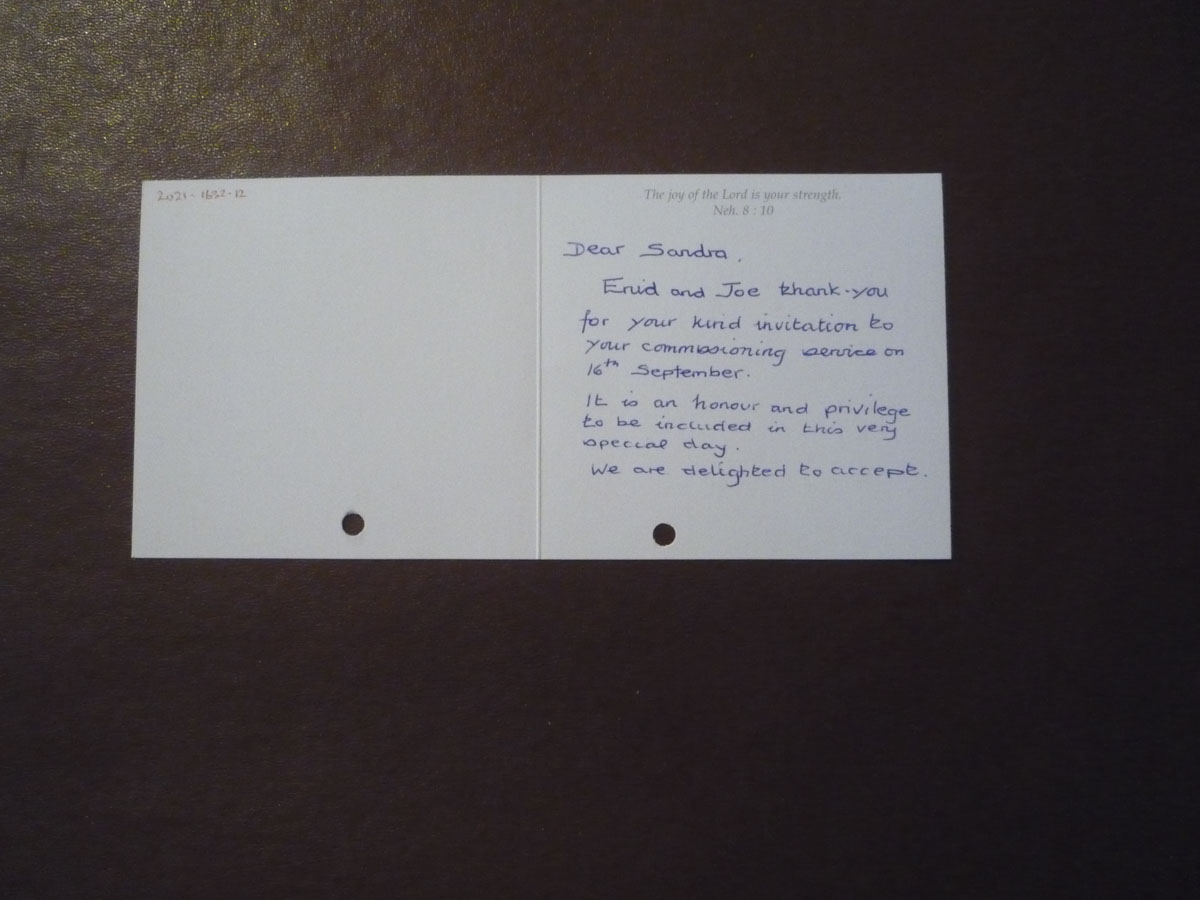 2021-1632-12
The joy of the Lord is your strength.
Neh. 8 : 10
Dear Sandra,
Enid and Joe thank-you
for your kind invitation to
your commissioning service on
16th September.
It is an honour and privilege
to be included in this very
special day.
We are delighted to accept.